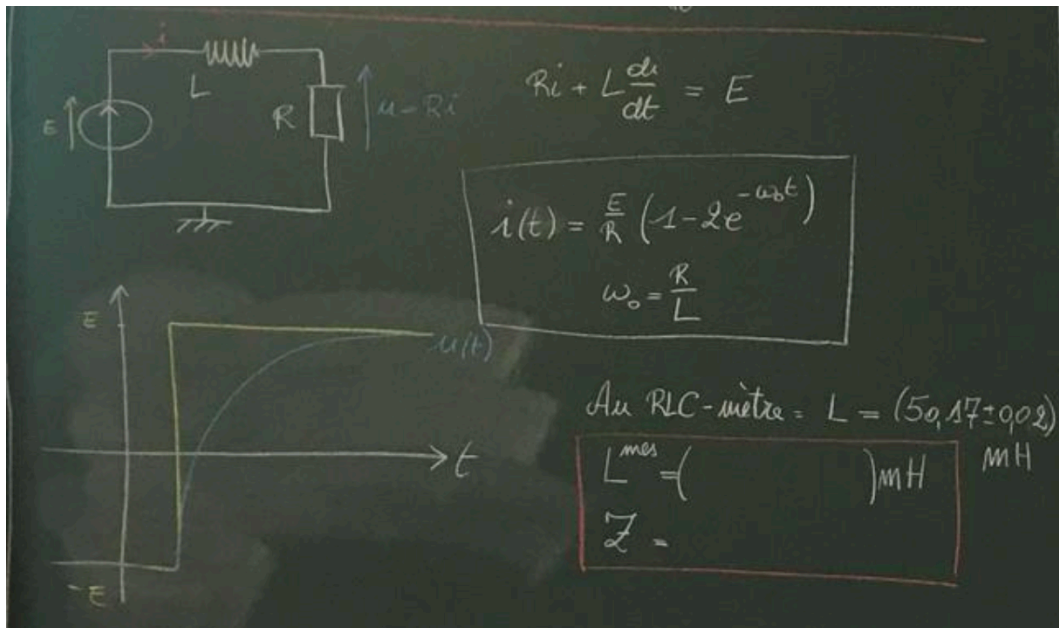 i
L
E
R
u = Ri
Ri + L di/dt = E
i(t) = E/R (1 - 2e^{-ω₀t})
ω₀ = R/L
E
u(t)
t
-E
Au RLC-mètre = L = (50,17 ± 0,02)
mH
L^{mes} = ( ) mH
Z =